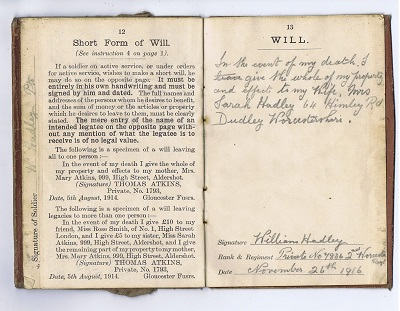 12
Short Form of Will.
(See instruction 4 on page 1).
If a soldier on active service, or under orders
for active service, wishes to make a short will, he
may do so on the opposite page. It must be
entirely in his own handwriting and must be
signed by him and dated. The full names and
addresses of the persons whom he desires to benefit,
and the sum of money or the articles or property
which he desires to leave to them, must be clearly
stated. The mere entry of the name of an
intended legatee on the opposite page with-
out any mention of what the legatee is to
receive is of no legal value.
The following is a specimen of a will leaving
all to one person :—
In the event of my death I give the whole of
my property and effects to my mother, Mrs.
Mary Atkins, 999, High Street, Aldershot.
(Signature) THOMAS ATKINS,
Private, No. 1793,
Date, 5th August, 1914. Gloucester Fusrs.
The following is a specimen of a will leaving
legacies to more than one person :—
In the event of my death I give £10 to my
friend, Miss Rose Smith, of No. 1, High Street,
London, and I give £5 to my sister, Miss Sarah
Atkins, 999, High Street, Aldershot, and I give
the remaining part of my property to my mother,
Mrs. Mary Atkins, 999, High Street, Aldershot.
(Signature) THOMAS ATKINS,
Private, No. 1793,
Date, 5th August, 1914. Gloucester Fusrs.
Signature of Soldier
13
WILL.
In the event of my death I
give the whole of my property
and effects to my Wife, Mrs
Sarah Hadley 64 Himley Rd
Dudley Worcestershire.
Signature William Hadley
Rank & Regiment Private No 2nd Worcester
Date November 26th 1916